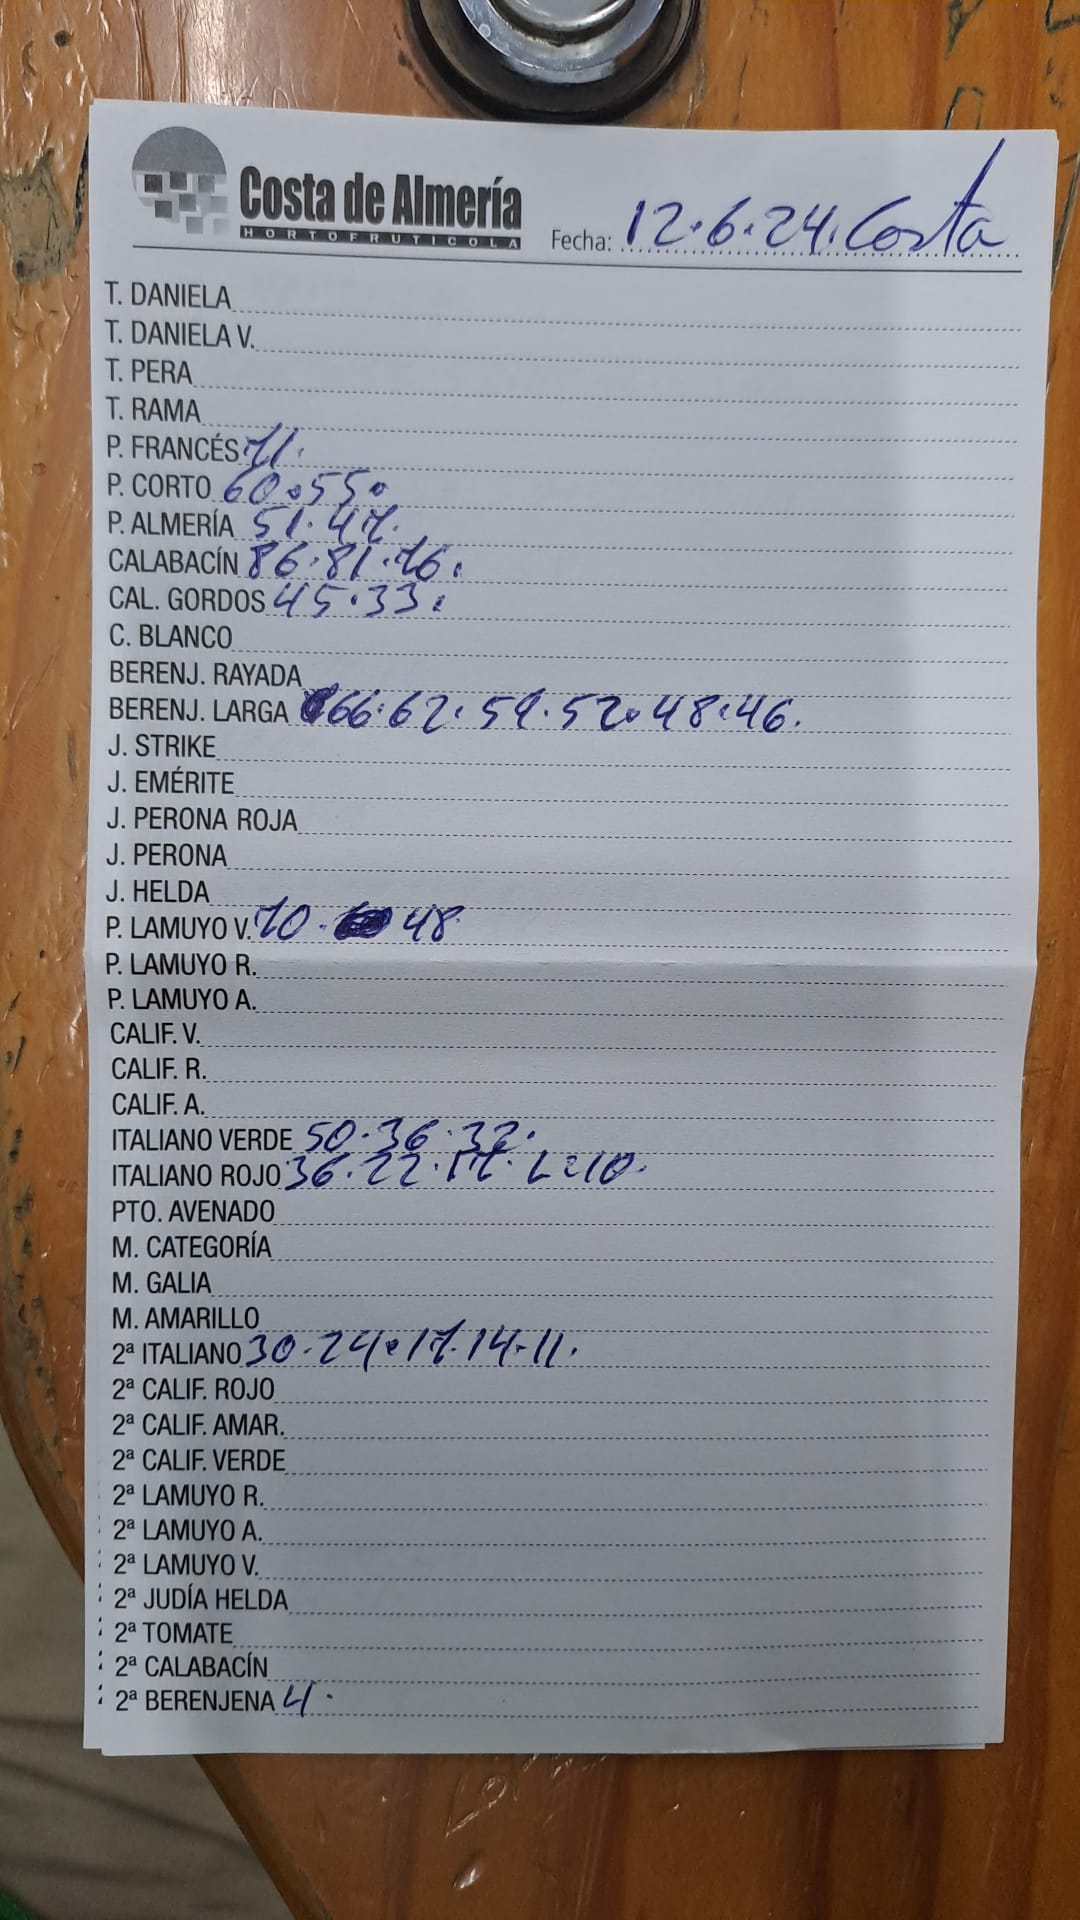 Costa de Almería
HORTOFRUTICOLA
Fecha: 12.6.24. Costa
T. DANIELA
T. DANIELA V.
T. PERA
T. RAMA
P. FRANCÉS 71.
P. CORTO 60.55.
P. ALMERÍA 51.47.
CALABACÍN 86.81.76.
CAL. GORDOS 45.33.
C. BLANCO
BERENJ. RAYADA
BERENJ. LARGA 66.62.59.52.48.46.
J. STRIKE
J. EMÉRITE
J. PERONA ROJA
J. PERONA
J. HELDA
P. LAMUYO V. 70. 48
P. LAMUYO R.
P. LAMUYO A.
CALIF. V.
CALIF. R.
CALIF. A.
ITALIANO VERDE 50.36.32.
ITALIANO ROJO 36.22.17. L=10.
PTO. AVENADO
M. CATEGORÍA
M. GALIA
M. AMARILLO
2ª ITALIANO 30.24.17.14.11.
2ª CALIF. ROJO
2ª CALIF. AMAR.
2ª CALIF. VERDE
2ª LAMUYO R.
2ª LAMUYO A.
2ª LAMUYO V.
2ª JUDÍA HELDA
2ª TOMATE
2ª CALABACÍN
2ª BERENJENA 4.